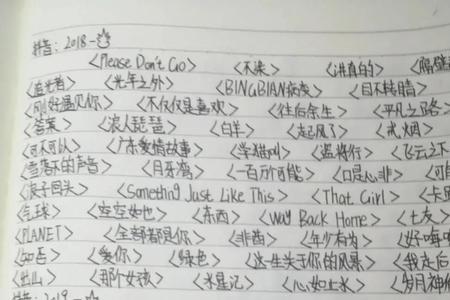 抖音：2018
<Please Don't Go> <不染> <讲真的> <隔壁
<追光者> <光年之外> <BINGBIAN病变> <目不转睛>
<刚好遇见你> <不仅仅是喜欢> <往后余生> <平凡之路>
<答案> <浪人琵琶> <白羊> <起风了> <戒烟>
<可不可以> <广东爱情故事> <学猫叫> <盗将行> <飞云之下
<雪落下的声音> <月牙湾> <一百万个可能> <口是心非> <可
<浪子回头> <Something Just Like This> <That Girl> <卡
<气球> <空空如也> <东西> <Way Back Home> <七友>
<PLANET> <全部都是你> <非酋> <年少有为> <好嗨哟
<知否> <爱你> <绿色> <这一生关于你的风景> <我走后
<出山> <那个女孩> <水星记> <心如止水> <岁月神偷
抖音：2019